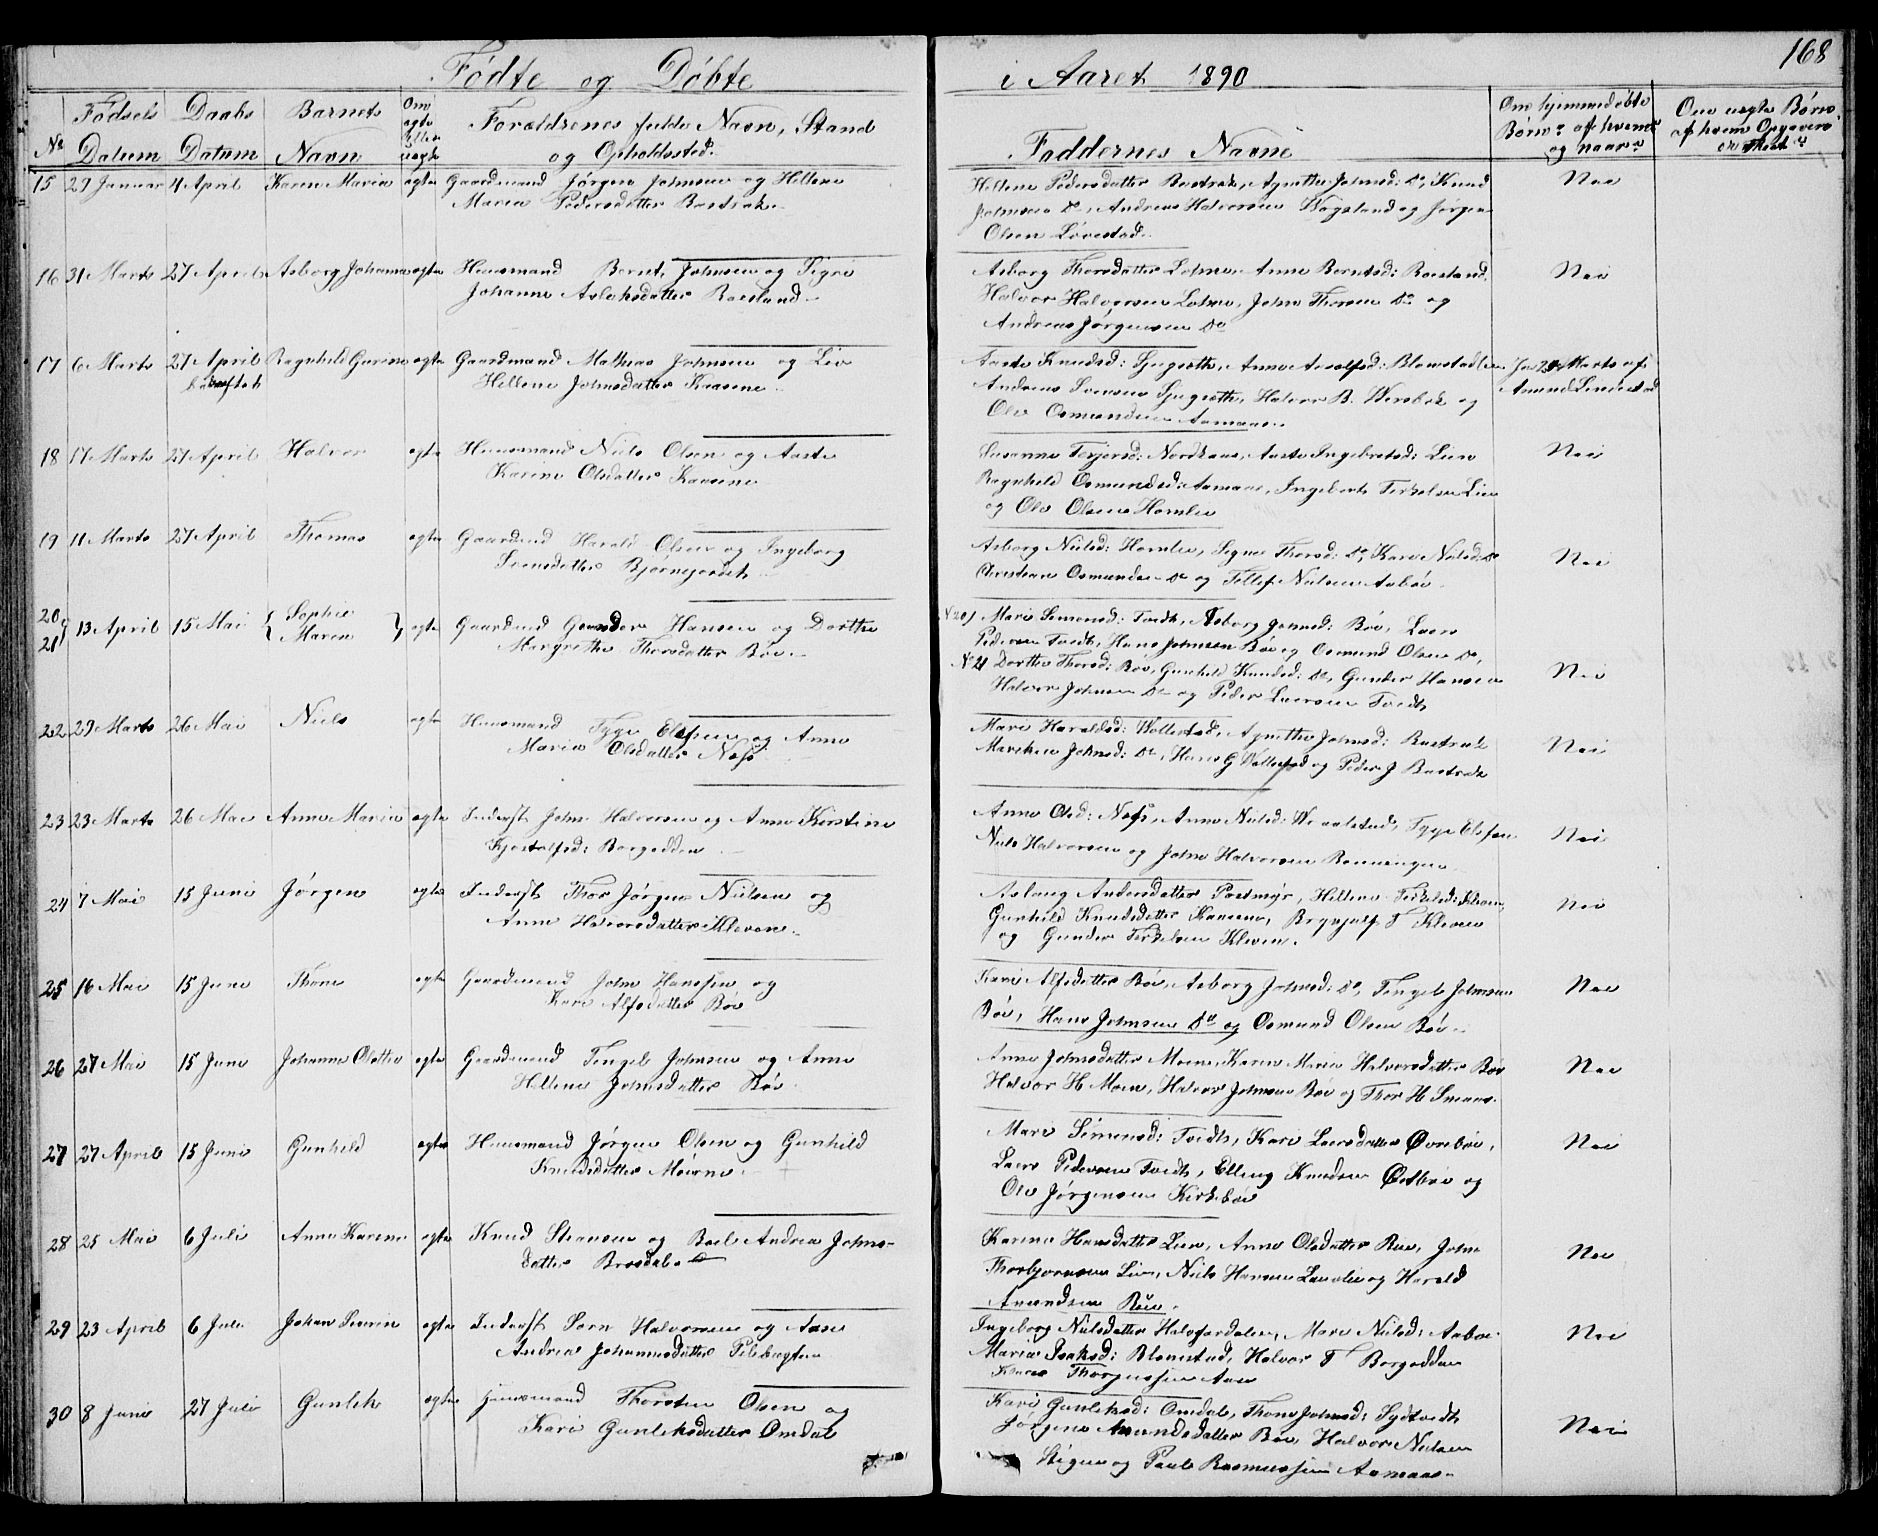 168
Fødte og Døbte i Aaret 1890
No | Fødsels Datum | Daabs Datum | Barnets Navn | Om ægte eller uægte | Forældrenes fulde Navn, Stand og Opholdssted. | Faddernes Navne | Om hjemmedøbte Børn: af hvem og naar | Om uægte Børn,
15 29 Januar 4 April Karen Maria ægte Gaardmand Jørgen Johnsen og Hellene
Maria Pedersdatter Bastrak
Hellene Pedersdatter Bastrak, Agnethe Johnsd: do, Knud
Johnsen do, Andreas Halvorsen Wægsland og Jørgen
Olsen Løvestad. Nei
16 31 Marts 27 April Asborg Johanne ægte Huusmand Bernt Johnsen og Sigri
Johanne Aslaksdatter Roesland
Asborg Thorsdatter Lohne, Anne Berntsd: Roesland,
Halvor Halvorsen Lohne, John Thorsen do og
Andreas Jørgensen do Nei
17 6 Marts 27 April Ragnhild Gurine ægte Gaardmand Mathias Johnsen og Liv
bekræftet
Hellene Johnsdatter Kaasene
Aaste Knudsd: Andreas Svensen Halvor B. og
Ole Osmundsen Aamaas.
Ja 20 Marts af
Amund Lindestad
18 17 Marts 27 April Halvor ægte Huusmand Niels Olsen og Aaste
Karine Olsdatter Kaasene
Susanne Terjersd: Nordkaas, Aaste Ingebretsd: Lien
Ragnhild Osmundsd: Aamaas, Ingebert Terkelsen Lien
og Ole Olsen Homlie Nei
19 11 Marts 27 April Thomas ægte Gaardmd Harald Olsen og Ingeborg
Svensdatter Bjørnejordet
Asborg Nielsd: Homlie, Signe Thorsd: do, Kari Nielsd: do
Christian Osmundsen do og Tellef Nielsen Aabøe Nei
20 21 13 April 15 Mai Sophie Maren ægte Gaardmd Gunder Hansen og Dorthe
Margrethe Thorsdatter Bøe
No 20, Mari Simensd: Tvedt, Asborg Johnsd: Bøe, Laers
Pedersen Tvedt, Hans Johnsen Bøe og Osmund Olsen do,
No 21 Dorthe Thorsd: Bøe, Gunhild Knudsd: do, Gunder Hansen
Halvor Johnsen do og Peder Laersen Tvedt Nei
22 29 Marts 26 Mai Niels ægte Huusmand Tyge Elefsen og Anne
Maria Olsdatter Næss
Mari Haraldsd: Wollestad, Agnethe Johnsd: Bastrak
Marthen Johnsd: do, Hans G Wollestad og Peder J Bastrak Nei
23 23 Marts 26 Mai Anne Maria ægte Inderst John Halvorsen og Anne Kirstine
Kjostolfsd: Borgedden
Anne Olsd: Næss, Anne Nielsd: Tyge Elefsen
Niels Halvorsen og John Halvorsen Rønningen Nei
24 7 Mai 15 Juni Jørgen ægte Inderst Thor Jørgen Nielsen og
Anne Halvorsdatter Klevene
Aslaug Andersdatter Postmyr, Hellene Terkelsd: Kleven,
Gunhild Knudsdatter Kaasene, Brynjulf T Kleven
og Gunder Terkelsen Kleven. Nei
25 16 Mai 15 Juni Thone ægte Gaardmand John Hanssen og
Kari Alfsdatter Bøe
Kari Alfsdatter Bøe, Asborg Johnsd: do, Tengel Johnsen
Bøe, Hans Johnsen do og Osmund Olsen Bøe Nei
26 27 Mai 15 Juni Johanne Olette ægte Gaardmand Tengel Johnsen og Anne
Hellene Johnsdatter Bøe
Anne Johnsdatter Moene, Karen Maria Halvorsdatter Bøe
Halvor H Moen, Halvor Johnsen Bøe og Thor H Nei
27 27 April 15 Juni Gunhild ægte Huusmand Jørgen Olsen og Gunhild
Knudsdatter Moerne
Mari Simensd: Tvedt, Kari Laersdatter Øvrebøe,
Laers Pedersen Tvedt, Elling Knudsen Østbøe og
Ole Jørgensen Kirkebøe Nei
28 25 Mai 6 Juli Anne Karine ægte Knud Stiansen og Boel Andrea Johns-
datter Brosdal
Karine Hansdatter Lien, Anne Olsdatter Rue, John
Thorbjørnsen Lien, Niels Hansen og Harald
Amundsen Rue. Nei
29 23 April 6 Juli Johan Severin ægte Inderst Sørn Halvorsen og Aase
Andrea Johannesdatter
Ingeborg Nielsdatter Mari Nielsd: Aabøe
Maria Isaksd: Blomstad, Halvor T Borgedden
Thorgussen Aase Nei
30 8 Juni 27 Juli Gunlek ægte Huusmand Thorsten Olsen og
Kari Gunleksdatter Omdal
Kari Gunleksd: Omdal, Thone Johnsd: Sydtvedt
Jørgine Amundsdatter Bøe, Halvor Nielsen
Stigen og Paul Rasmussen Aamaas Nei